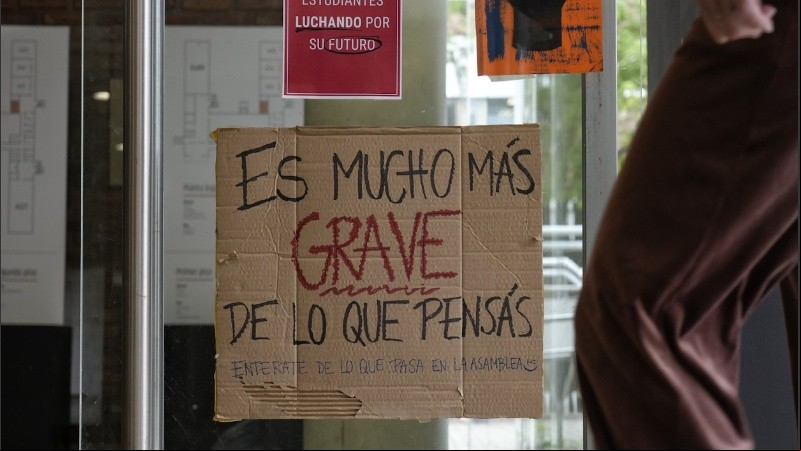 ESTUDIANTES
LUCHANDO POR
SU FUTURO
ES MUCHO MÁS
GRAVE
DE LO QUE PENSÁS
ENTERATE DE LO QUE PASA EN LA ASAMBLEA